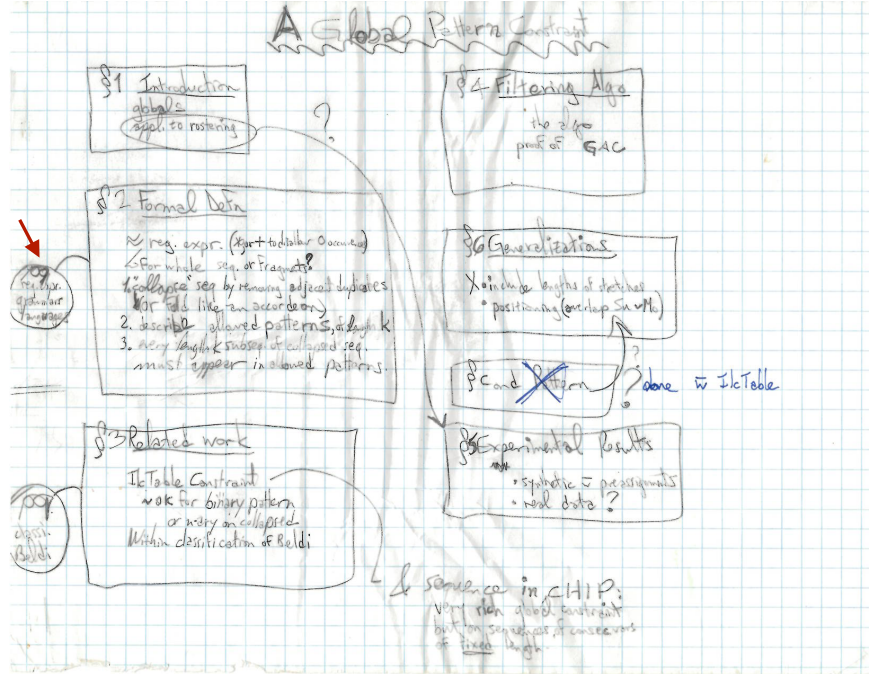 A Global Pattern Constraint
§1 Introduction
globals
appl. to rostering
?
§2 Formal Defn
≈ reg. expr. (* or + to disallow 0 occurrence)
For whole seq. or Fragments?
1. "collapse" seq by removing adjacent duplicates
(or fold like an accordeon)
2. describe allowed patterns, of length k
3. every length k subseq. of collapsed seq.
must appear in allowed patterns.
reg. expr.
§3 Related work
IlcTable Constraint
~ OK for binary pattern
or n-ary on collapsed
Within classification of Beldi
classi.
Beldi
§4 Filtering Algo
the algo
proof of GAC
§6 Generalizations
X • include lengths of stretches
• positioning (overlap Su ~ Mo)
?
§ Cond Pattern
? done w̄ IlcTable
§5 Experimental Results
• synthetic w̄ preassignments
• real data ?
& sequence in CHIP:
very rich global constraint
but on sequences of consec vars
of fixed length.